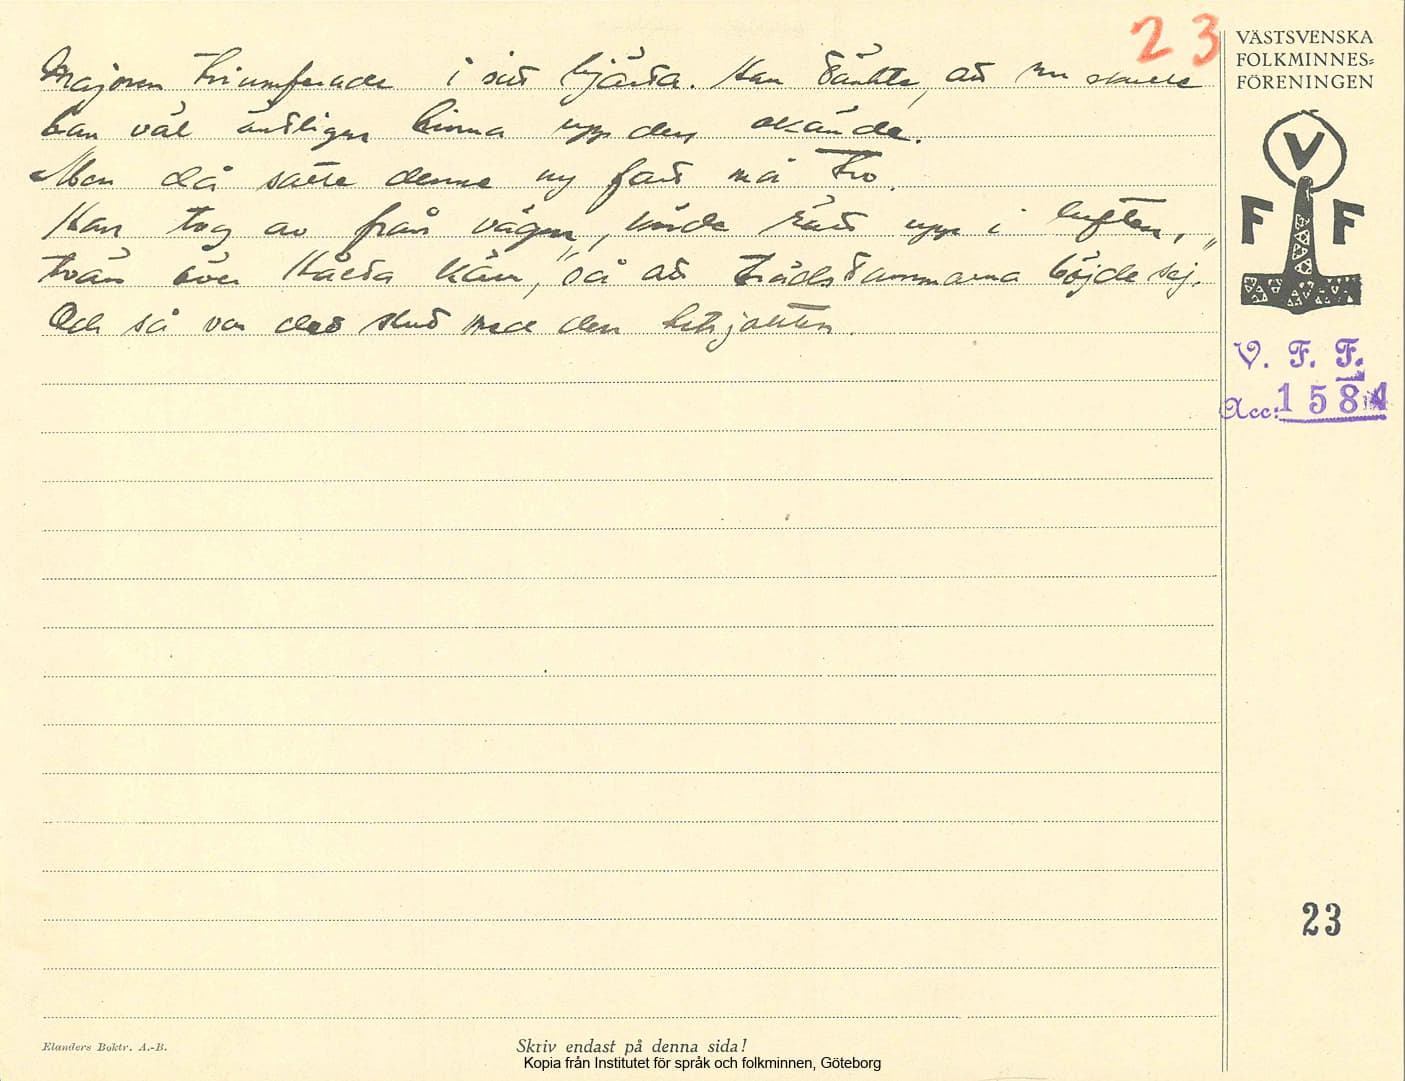 23
Majoren triumferade i sitt hjärta. Han tänkte, att nu skulle
han väl äntligen hinna upp den okände.
Men då satte denne ny fart må tro.
Han tog av från vägen, vände rätt upp i luften,
tvärs över "Kålta kärr", så att trädstammarna böjde sej.
Och så var det slut med den hetsjakten.
VÄSTSVENSKA
FOLKMINNES-
FÖRENINGEN
V
F F
V. F. F.
Acc: 1584
23
Elanders Boktr. A.-B.
Skriv endast på denna sida!
Kopia från Institutet för språk och folkminnen, Göteborg